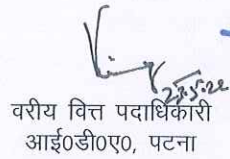 27.5.22
वरीय वित्त पदाधिकारी
आई0डी0ए0, पटना